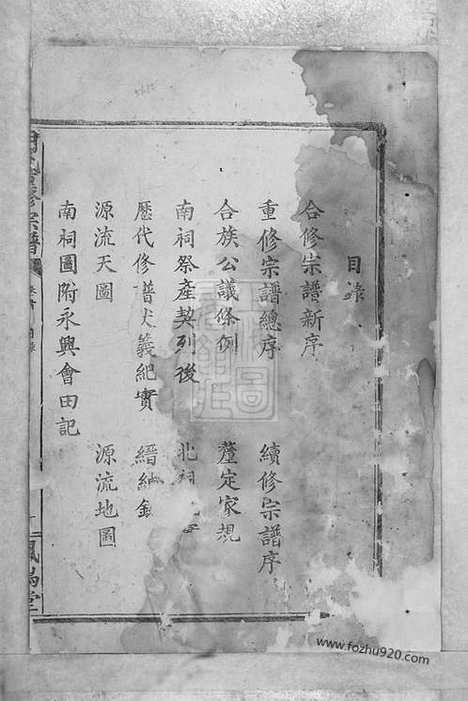 目錄
合修宗譜新序
重修宗譜總序 續修宗譜序
合族公議條例 釐定家規
南祠祭產契列後 北祠
歷代修譜大義紀實 縉紳錄
源流天圖 源流地圖
南祠圖附永興會田記
修宗譜
目錄
鳳陽堂
www.fozhu920.com